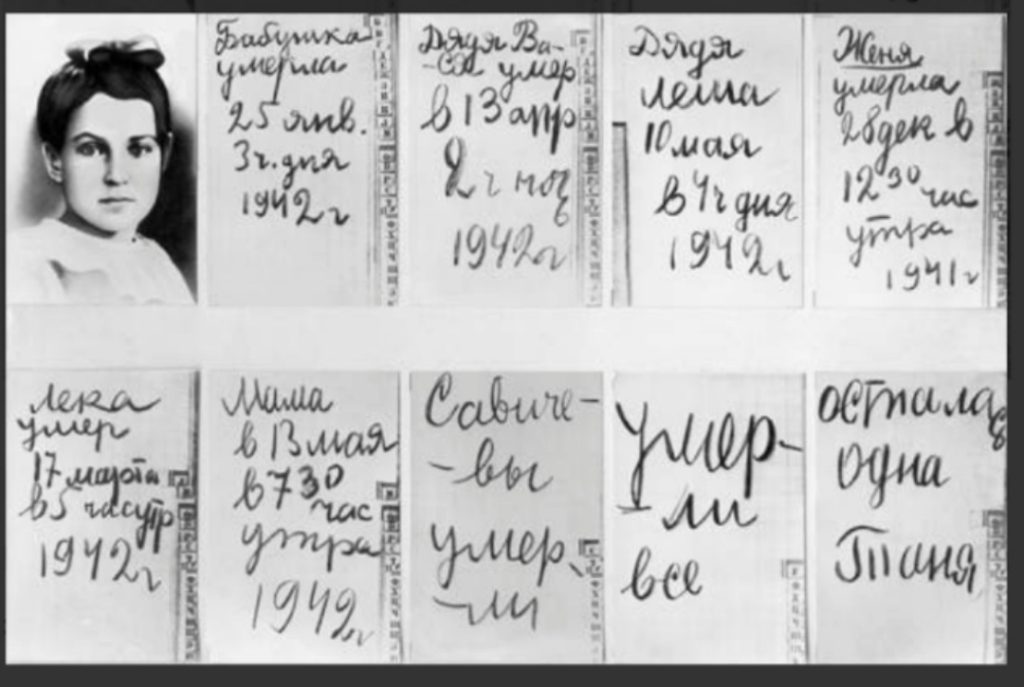 Бабушка
умерла
25 янв.
3 ч. дня
1942 г
Дядя Ва-
-ся умер
в 13 апр
2 ч ноч
1942 г
Дядя
Леша
10 мая
в 4 ч дня
1942 г
Женя
умерла
28 дек в
12 30 час
утра
1941 г
Лека
умер
17 марта
в 5 часутр
1942 г
Мама
в 13 мая
в 7 30
час
утра
1942 г
Савиче-
-вы
умер-
-ли
умер-
-ли
все
осталась
одна
Таня